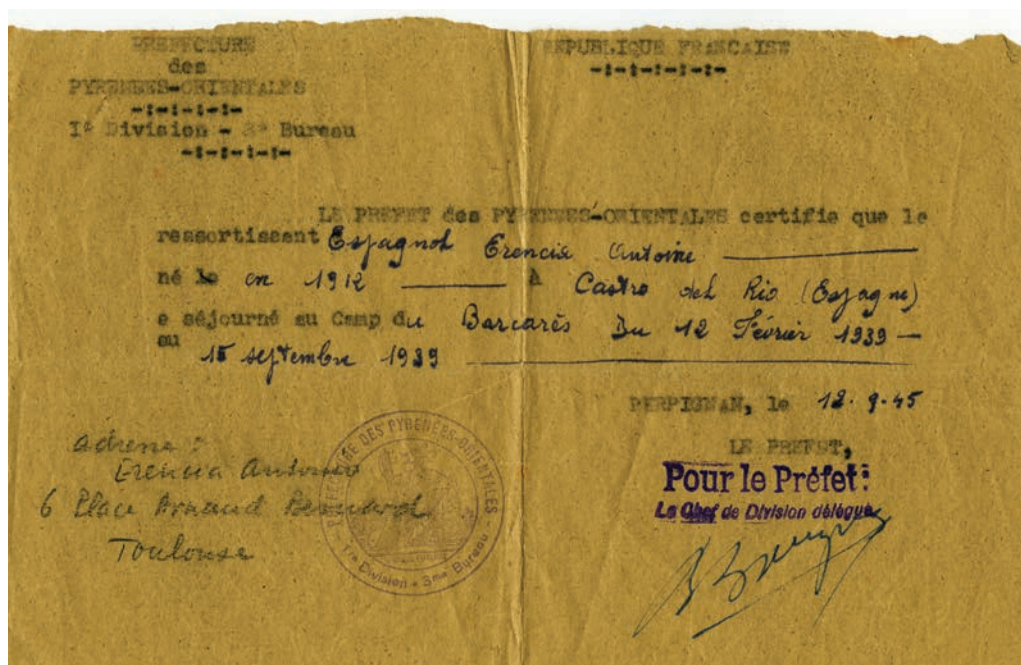 PREFECTURE
des
PYRENEES-ORIENTALES
-:-:-:-:-
Iº Division - 3º Bureau
-:-:-:-:-
REPUBLIQUE FRANCAISE
-:-:-:-:-:-
LE PREFET des PYRENEES-ORIENTALES certifie que le
ressortissant Espagnol Erencia Antoine
né le en 1912 à Castro del Rio (Espagne)
a séjourné au Camp du Barcarès Du 12 Février 1939 -
au 15 septembre 1939
PERPIGNAN, le 12.9.45
LE PREFET,
Pour le Préfet:
Le Chef de Division délégué
adresse :
Erencia Antonio
6 Place Arnaud Bernard
Toulouse
PREFECTURE DES PYRENEES-ORIENTALES
1re Division - 3me Bureau